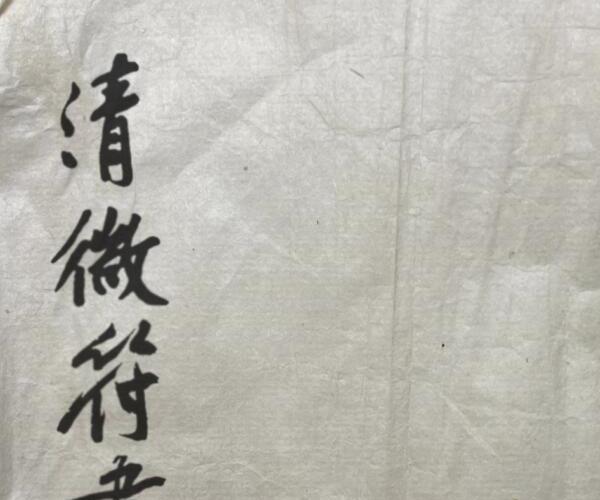 清微符